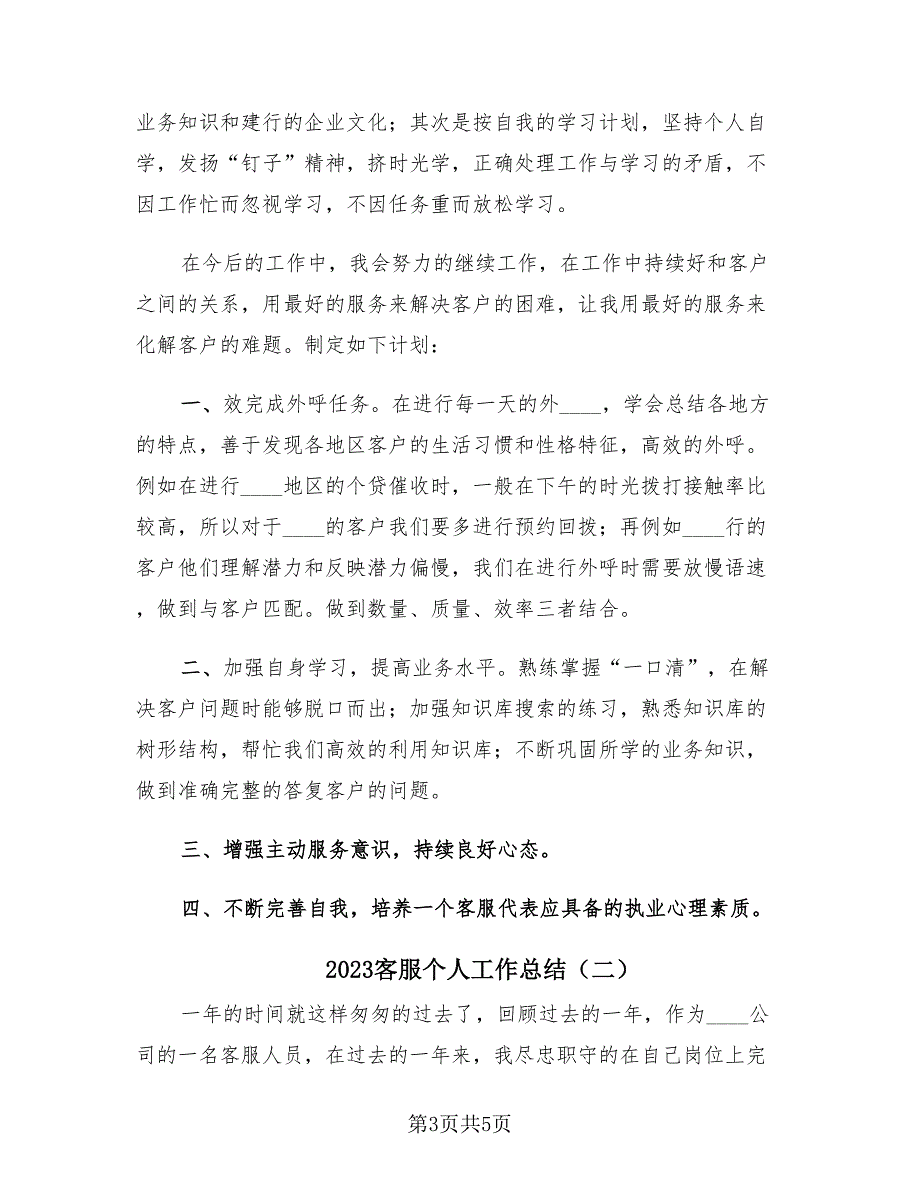 业务知识和建行的企业文化；其次是按自我的学习计划，坚持个人自
学，发扬“钉子”精神，挤时光学，正确处理工作与学习的矛盾，不
因工作忙而忽视学习，不因任务重而放松学习。
在今后的工作中，我会努力的继续工作，在工作中持续好和客户
之间的关系，用最好的服务来解决客户的困难，让我用最好的服务来
化解客户的难题。制定如下计划：
一、效完成外呼任务。在进行每一天的外____，学会总结各地方
的特点，善于发现各地区客户的生活习惯和性格特征，高效的外呼。
例如在进行____地区的个贷催收时，一般在下午的时光拨打接触率比
较高，所以对于____的客户我们要多进行预约回拨；再例如____行的
客户他们理解潜力和反映潜力偏慢，我们在进行外呼时需要放慢语速
，做到与客户匹配。做到数量、质量、效率三者结合。
二、加强自身学习，提高业务水平。熟练掌握“一口清”，在解
决客户问题时能够脱口而出；加强知识库搜索的练习，熟悉知识库的
树形结构，帮忙我们高效的利用知识库；不断巩固所学的业务知识，
做到准确完整的答复客户的问题。
三、增强主动服务意识，持续良好心态。
四、不断完善自我，培养一个客服代表应具备的执业心理素质。
2023客服个人工作总结（二）
一年的时间就这样匆匆的过去了，回顾过去的一年，作为____公
司的一名客服人员，在过去的一年来，我尽忠职守的在自己岗位上完
第3页共5页